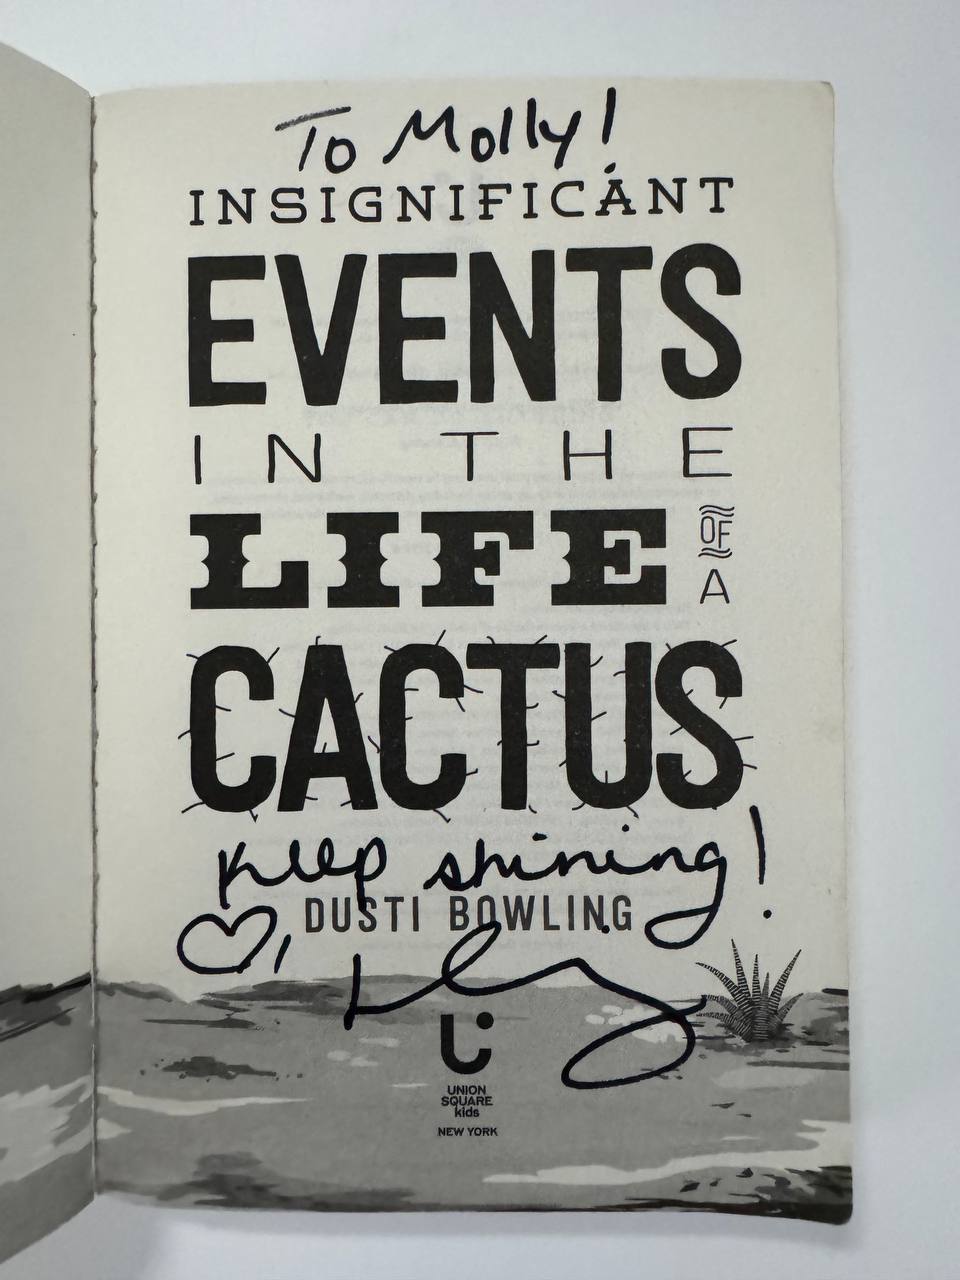 To Molly!
INSIGNIFICANT
EVENTS
IN THE
LIFE OF A
CACTUS
Keep shining!
DUSTI BOWLING
UNION
SQUARE
kids
NEW YORK